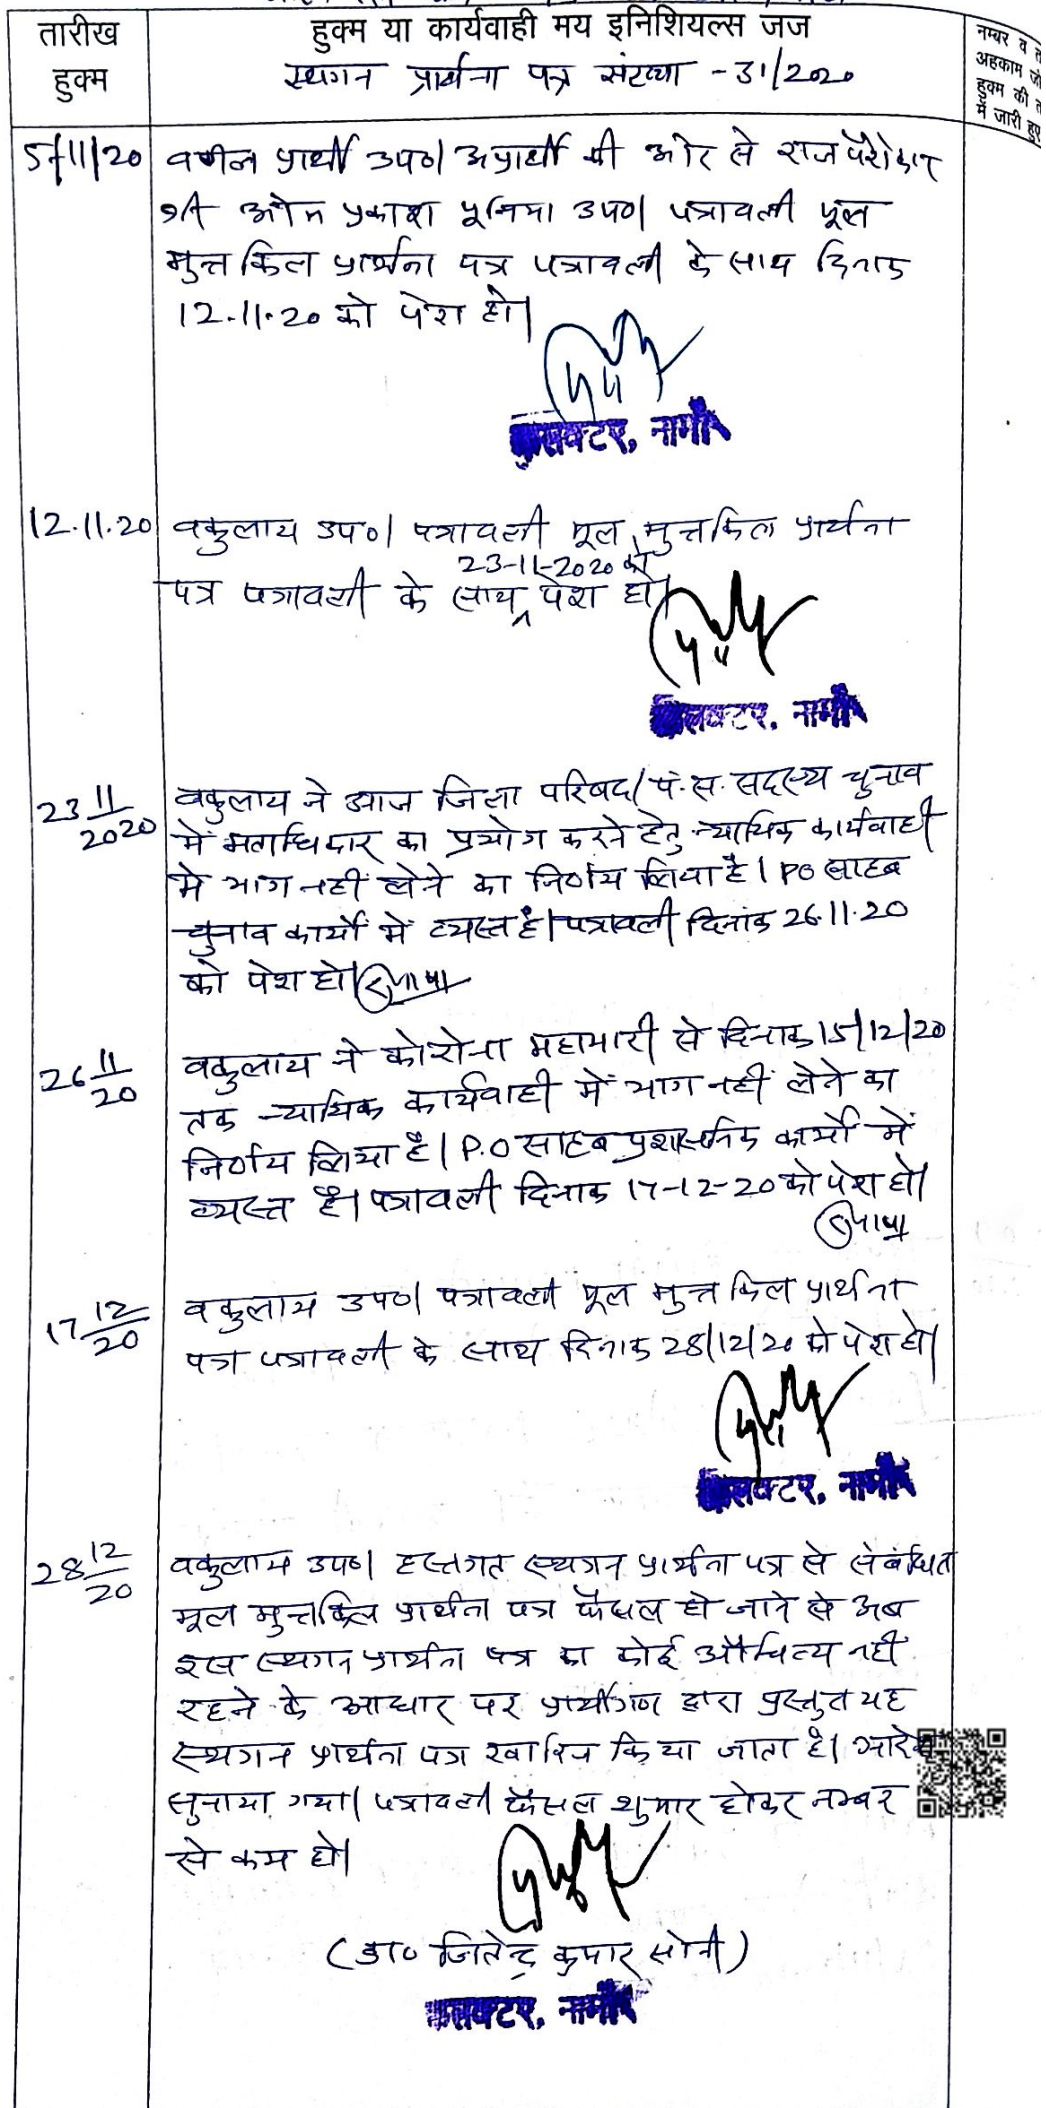 तारीख
हुक्म
हुक्म या कार्यवाही मय इनिशियल्स जज
स्थगन प्रार्थना पत्र संख्या - 31/2020
नम्बर व
अहकाम जो
हुक्म की
में जारी हुए
5/11/20 वकील प्रार्थी उप०। अप्रार्थी की ओर से राज पैरोकार
श्री ओम प्रकाश पूनिया उप०। पत्रावली मूल
मुन्तकिल प्रार्थना पत्र पत्रावली के साथ दिनांक
12.11.20 को पेश हो।
कलक्टर, नागौर
12.11.20 वकुलाय उप०। पत्रावली मूल मुन्तकिल प्रार्थना
23-11-2020 को
पत्र पत्रावली के साथ पेश हो।
कलक्टर, नागौर
23 11/2020 वकुलाय ने आज जिला परिषद/पं.स. सदस्य चुनाव
में मताधिकार का प्रयोग करने हेतु न्यायिक कार्यवाही
में भाग नहीं लेने का निर्णय लिया है। PO साहब
चुनाव कार्यों में व्यस्त है। पत्रावली दिनांक 26.11.20
को पेश हो।
26 11/20 वकुलाय ने कोरोना महामारी से दिनांक 15/12/20
तक न्यायिक कार्यवाही में भाग नहीं लेने का
निर्णय लिया है। P.O साहब प्रशासनिक कार्यों में
व्यस्त है। पत्रावली दिनांक 17-12-20 को पेश हो।
17 12/20 वकुलाय उप०। पत्रावली मूल मुन्तकिल प्रार्थना
पत्र पत्रावली के साथ दिनांक 28/12/20 को पेश हो।
कलक्टर, नागौर
28 12/20 वकुलाय उप०। हस्तगत स्थगन प्रार्थना पत्र से संबंधित
मूल मुन्तकिल प्रार्थना पत्र फैसल हो जाने से अब
इस स्थगन प्रार्थना पत्र का कोई औचित्य नहीं
रहने के आधार पर प्रार्थीगण द्वारा प्रस्तुत यह
स्थगन प्रार्थना पत्र खारिज किया जाता है। आदेश
सुनाया गया। पत्रावली फैसल शुमार होकर नम्बर
से कम हो।
(डा० जितेन्द्र कुमार सोनी)
कलक्टर, नागौर